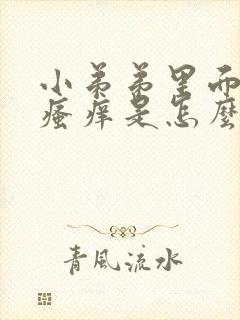 小弟弟里而
瘙痒是怎麼
青風流水